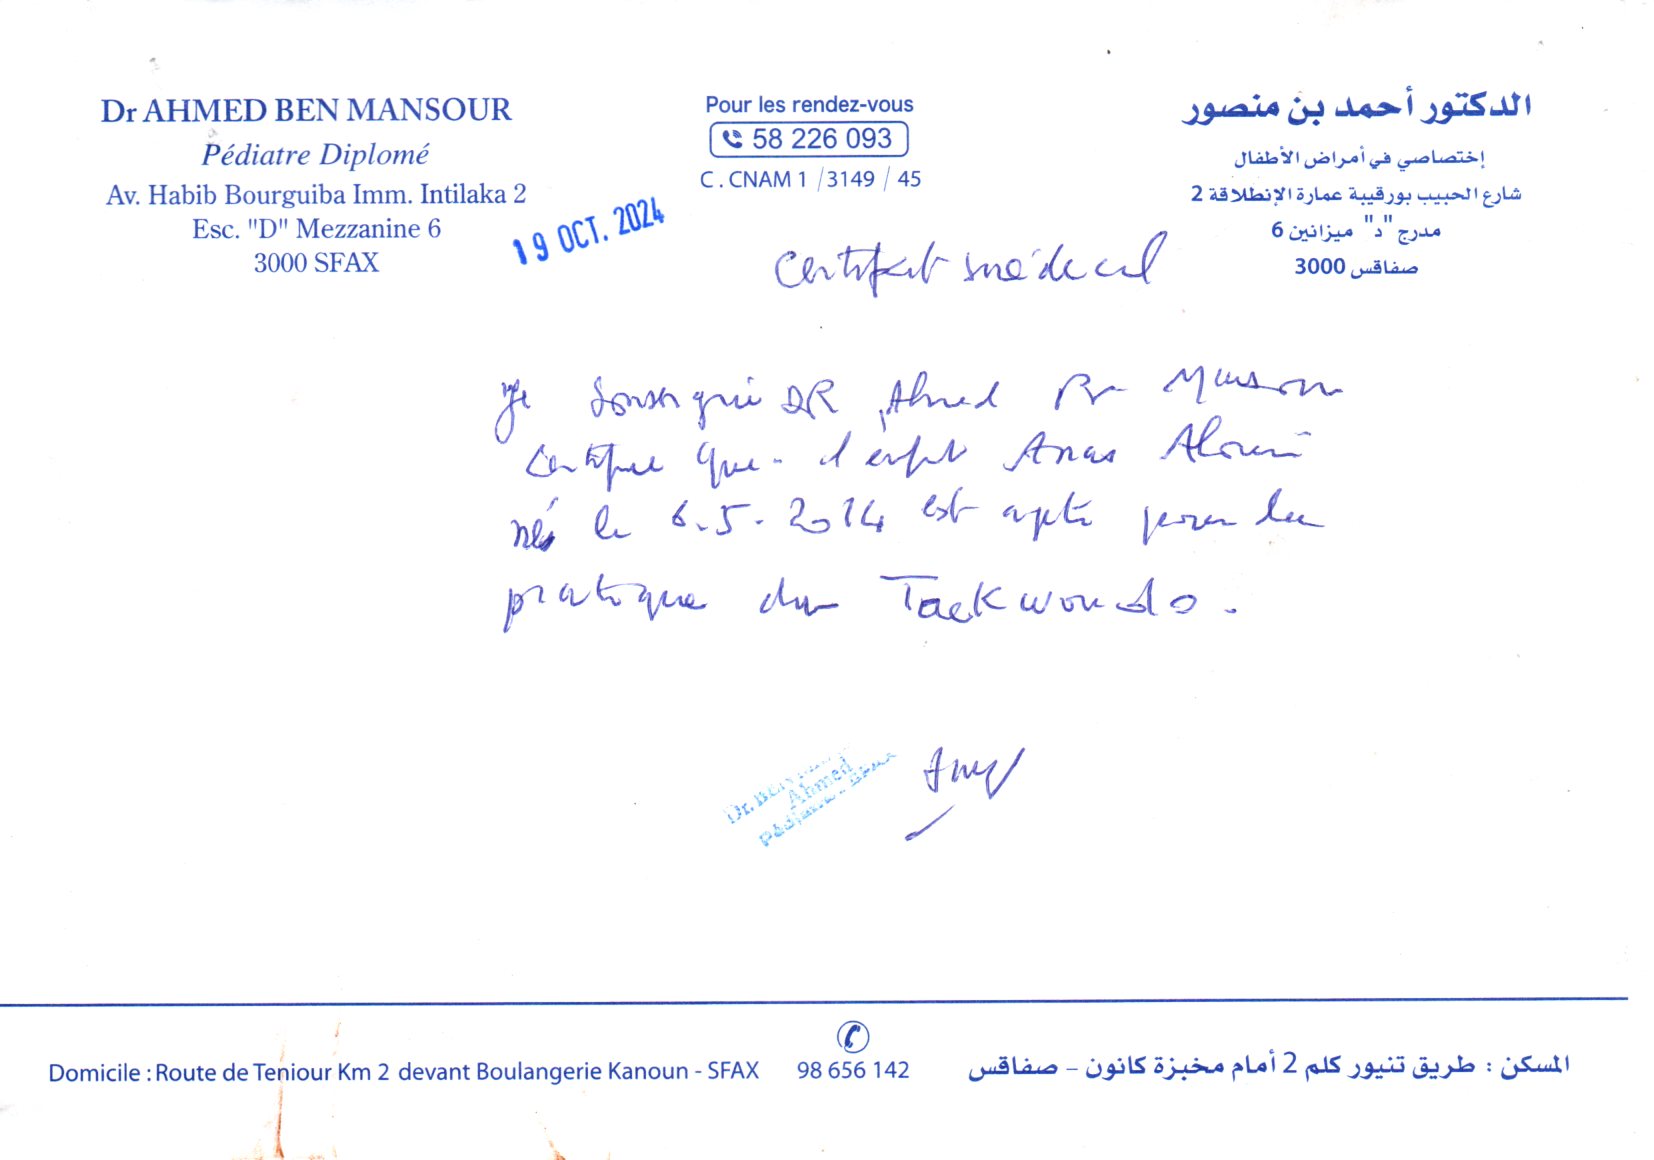 Dr AHMED BEN MANSOUR
Pédiatre Diplomé
Av. Habib Bourguiba Imm. Intilaka 2
Esc. "D" Mezzanine 6
3000 SFAX
Pour les rendez-vous
58 226 093
C. CNAM 1 /3149 / 45
الدكتور أحمد بن منصور
إختصاصي في أمراض الأطفال
شارع الحبيب بورقيبة عمارة الإنطلاقة 2
مدرج "د" ميزانين 6
صفاقس 3000
19 OCT. 2024
Certificat médical
Je soussigné DR Ahmed Ben Mansour
certifie que l'enfant Anas Alouini
né le 6.5.2014 est apte pour la
pratique du Taekwondo.
Dr.
Ahmed
Pédiatre
Domicile : Route de Teniour Km 2 devant Boulangerie Kanoun - SFAX
98 656 142
المسكن : طريق تنيور كلم 2 أمام مخبزة كانون - صفاقس